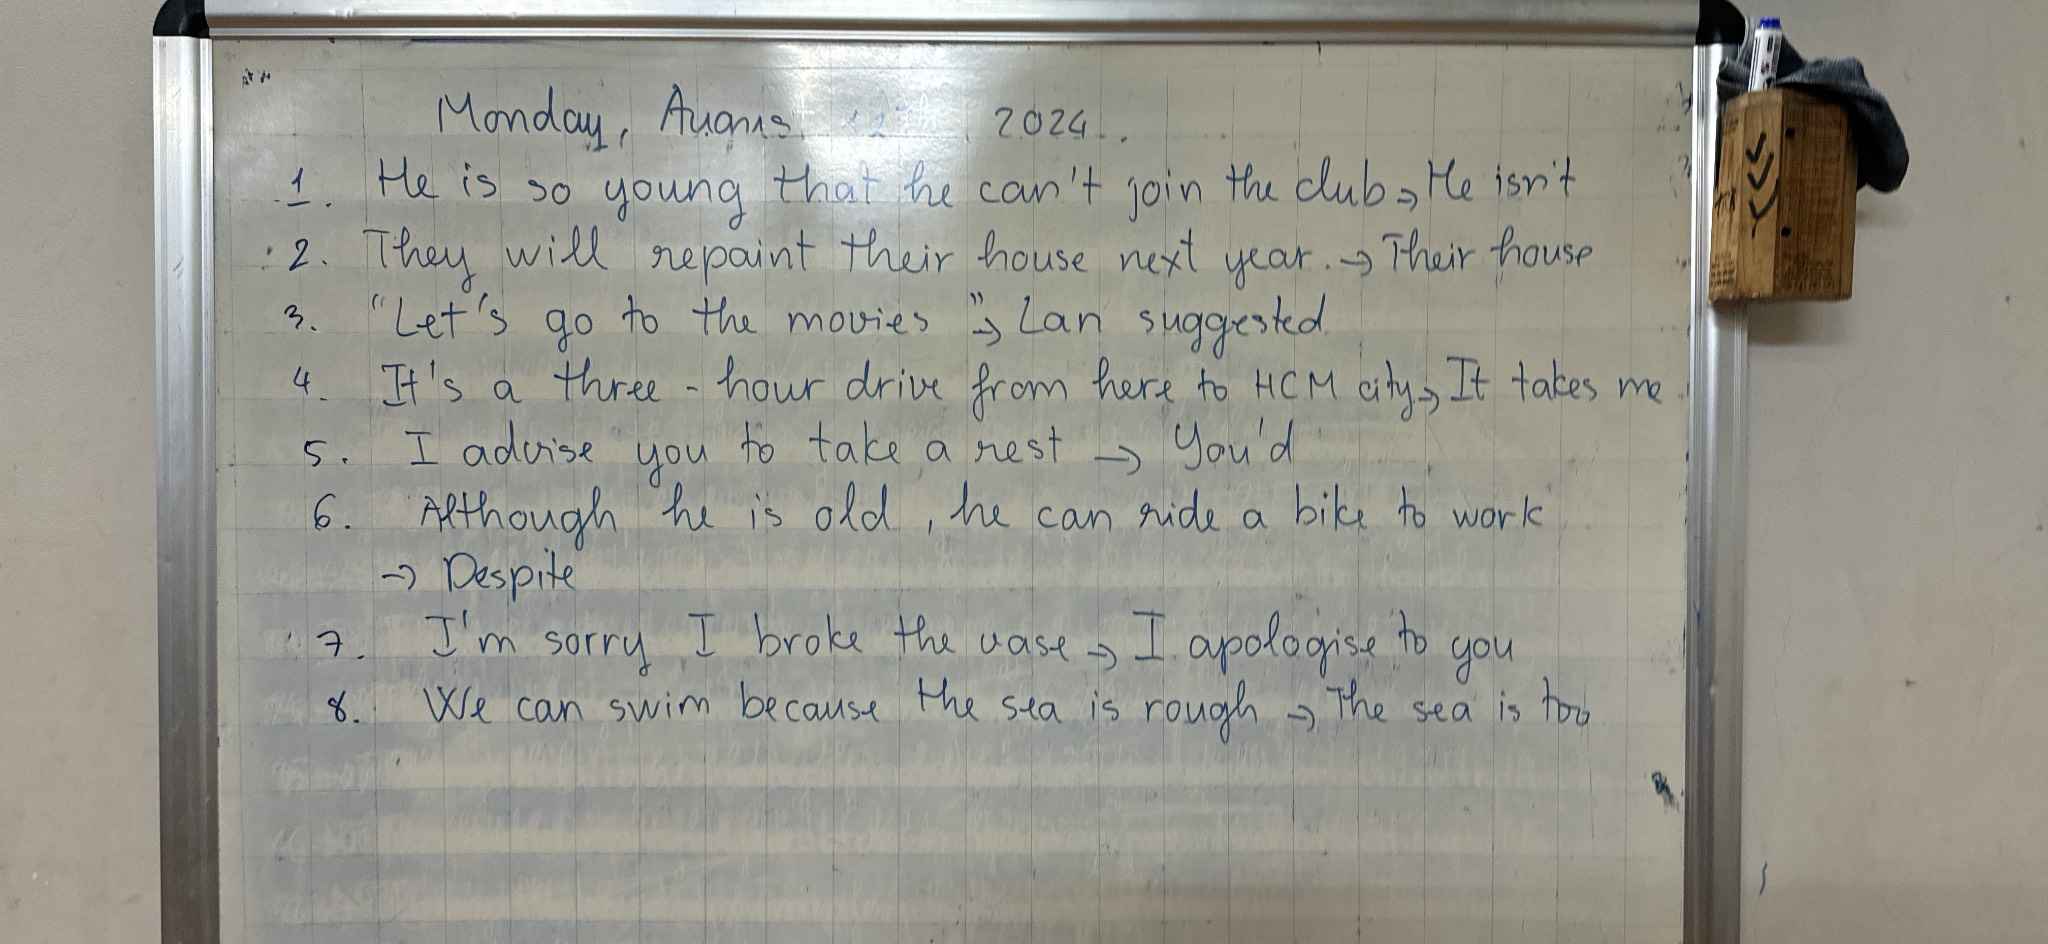 Monday, 2024.
1. He is so young that he can't join the club → He isn't
2. They will repaint their house next year. → Their house
3. "Let's go to the movies" → Lan suggested
4. It's a three - hour drive from here to HCM city → It takes me
5. I advise you to take a rest → You'd
6. Although he is old, he can ride a bike to work
→ Despite
7. I'm sorry I broke the vase → I apologise to you
8. We can swim because the sea is rough → The sea is too